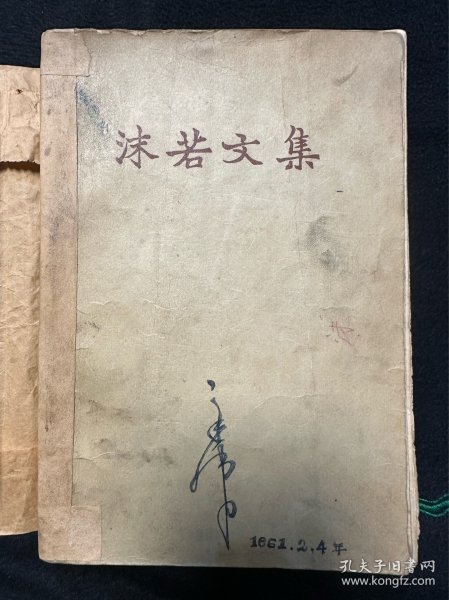 沫若文集
1961.2.4年
孔夫子旧书网
www.kongfz.com